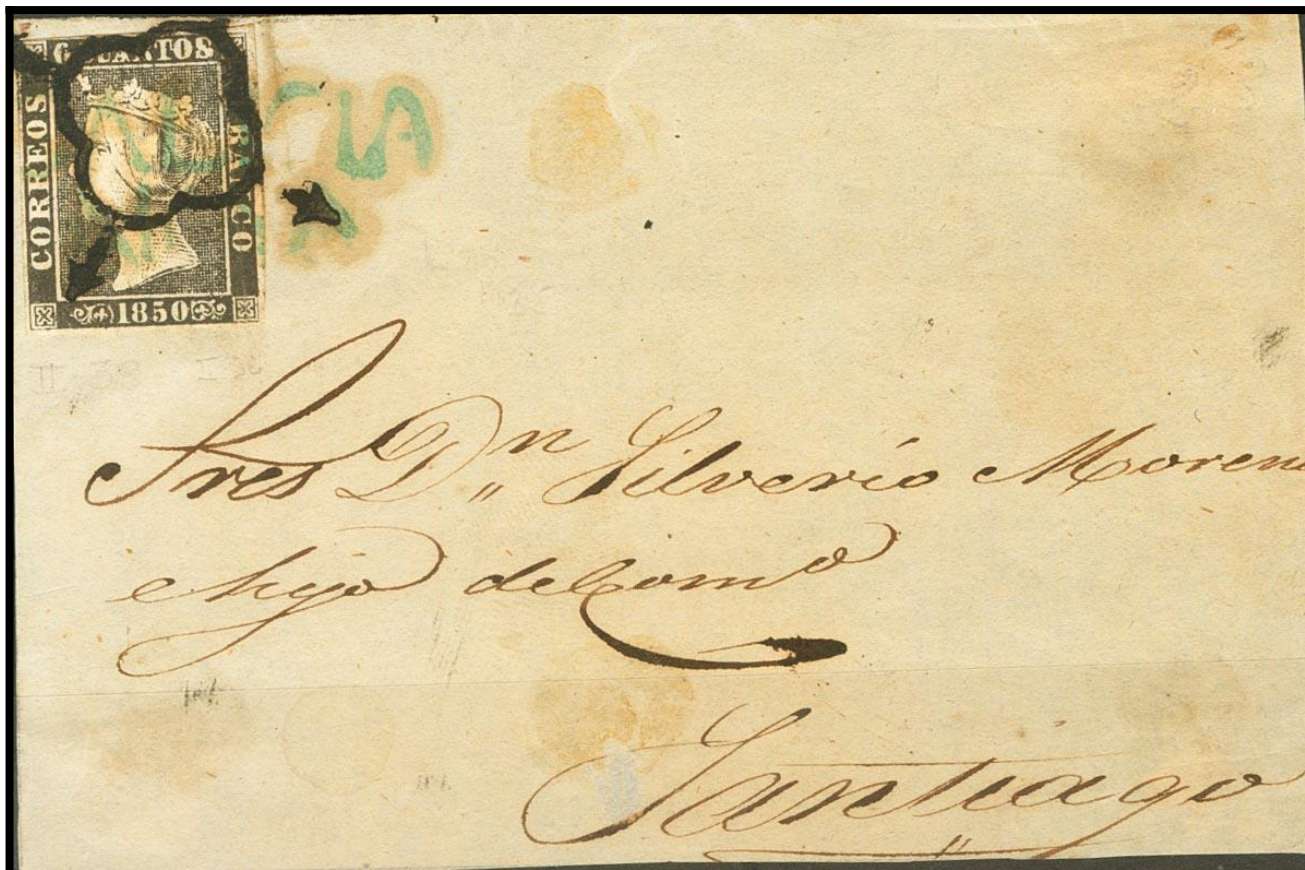 6 CUARTOS
CORREOS
FRANCO
1850
CIA
Sres Dn Silverio Moreno
e hijo del Com.o
Santiago